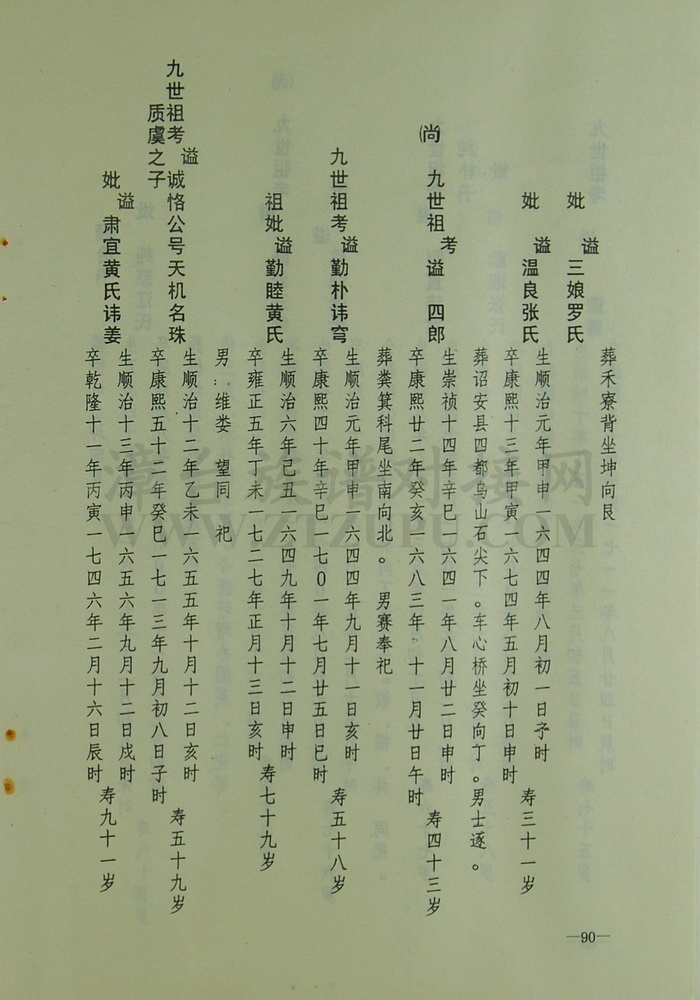 葬禾寮背坐坤向艮
妣谥三娘罗氏
妣谥温良张氏
生顺治元年甲申一六四四年八月初一日子时
卒康熙十三年甲寅一六七四年五月初十日申时 寿三十一岁
葬诏安县四都乌山石尖下。车心桥坐癸向丁。男士逐。
(尚) 九世祖考谥 四郎
生崇祯十四年辛巳一六四一年八月廿二日申时
卒康熙廿二年癸亥一六八三年 十一月廿日午时 寿四十三岁
葬粪箕科尾坐南向北。 男赛奉祀
九世祖考谥勤朴讳穹
生顺治元年甲申一六四四年九月十一日亥时
卒康熙四十年辛巳一七0一年七月廿五日巳时 寿五十八岁
祖妣谥勤睦黄氏
生顺治六年己丑一六四九年十月十二日申时
卒雍正五年丁未一七二七年正月十三日亥时 寿七十九岁
男:维娄 望同 祀
九世祖考谥诚恪公号天机名珠
质虞之子
生顺治十二年乙未一六五五年十月十二日亥时
卒康熙五十二年癸巳一七一三年九月初八日子时 寿五十九岁
妣谥肃宜黄氏讳姜
生顺治十三年丙申一六五六年九月十二日戌时
卒乾隆十一年丙寅一七四六年二月十六日辰时 寿九十一岁
—90—